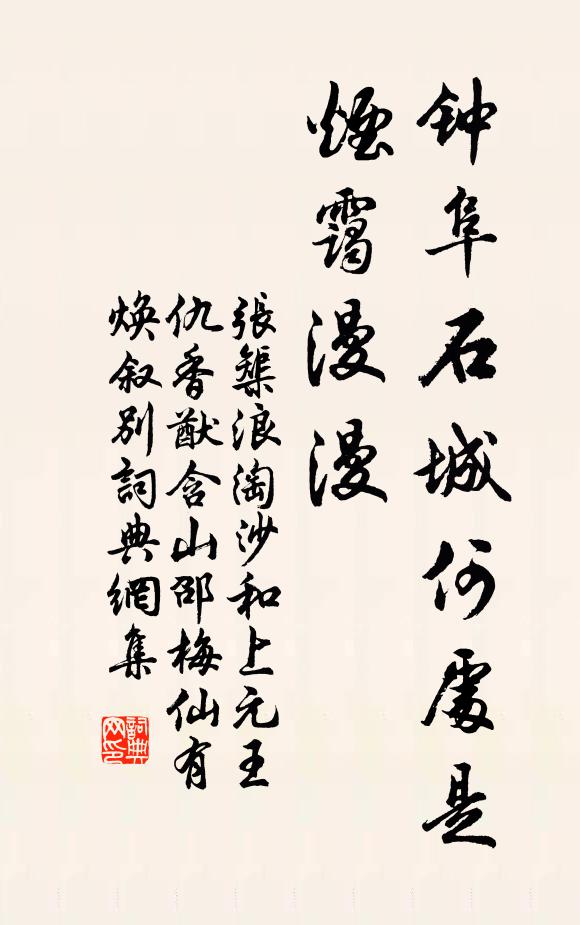 钟阜石城何處是
煙靄漫漫
張榘浪淘沙和上元王
仇香猷含山邵梅仙有
煥叙别詞典網集
詞典网印